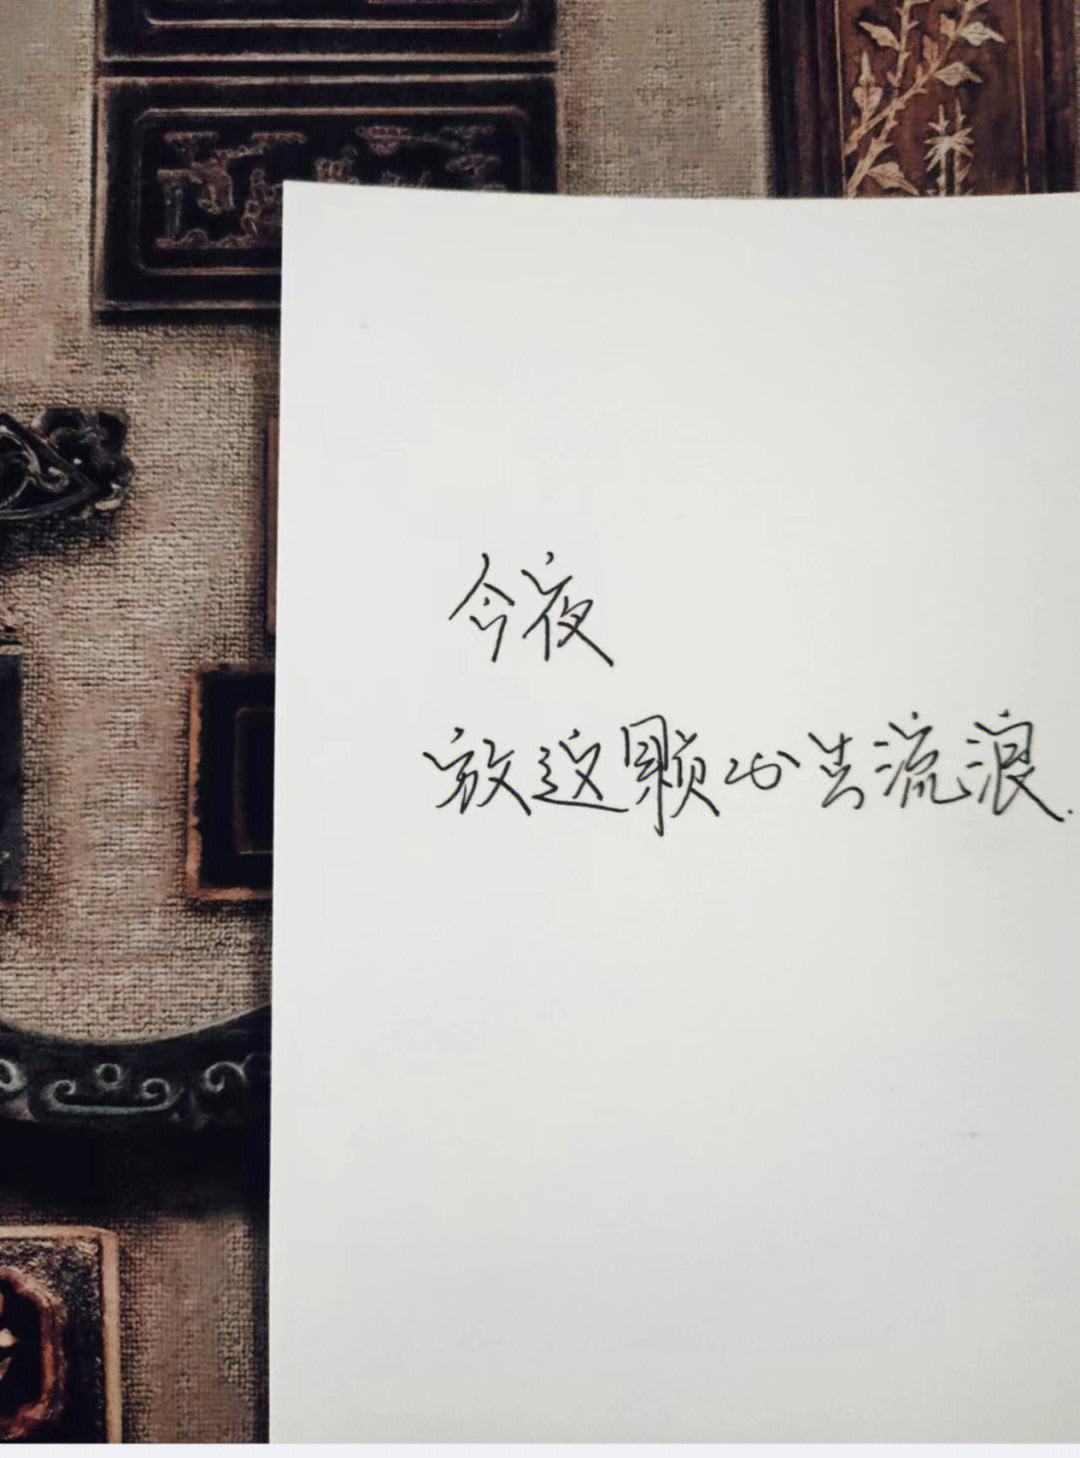 今夜
放这颗心去流浪.